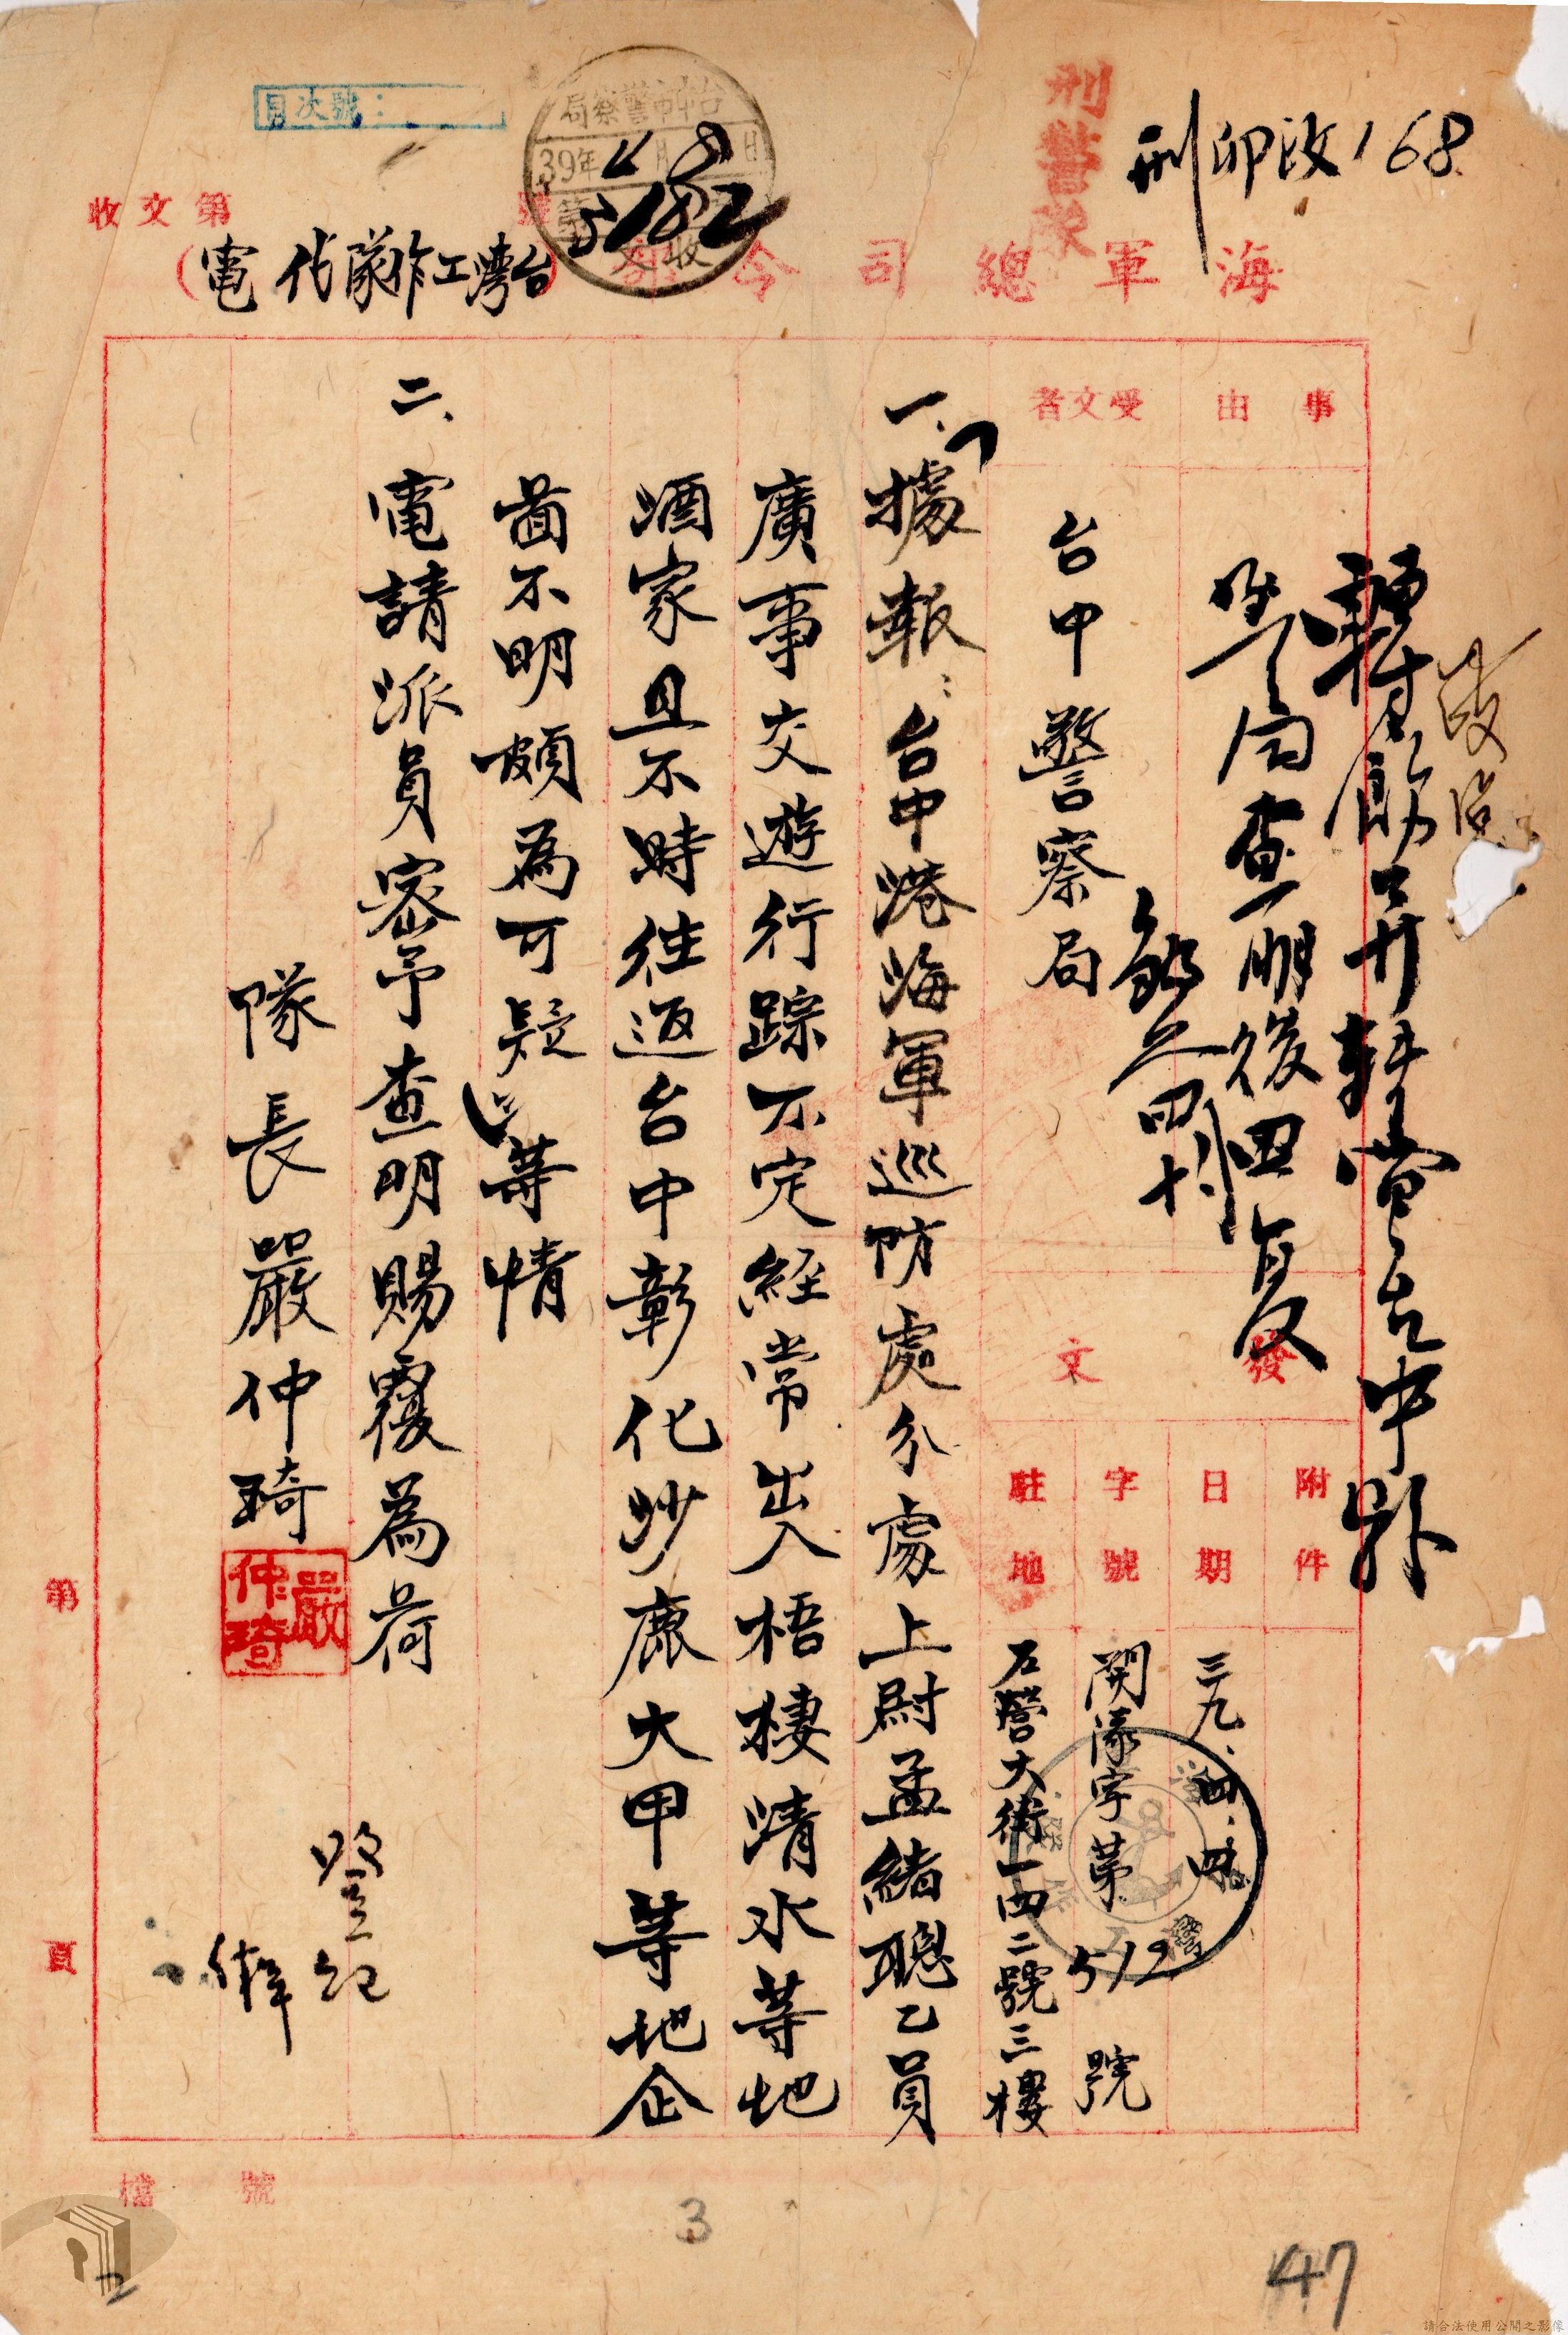 刑卯政168
刑警隊
目次號：
台中市警察局
39年4月8日
5182
收文
收文第 號
海軍總司令部
(台灣工作隊代電)
事由
受文者
台中警察局
發文
附件
日期
三九、四、
字號
開隊字第512號
駐地
左營大街一四二號三樓
查明後
一、據報：台中港海軍巡防處分處上尉孟緒聰乙員
廣事交遊行踪不定經常出入梧棲清水等地
酒家且不時往返台中彰化沙鹿大甲等地企
啚不明頗為可疑等情
二、電請派員密予查明賜覆為荷
隊長嚴仲琦
嚴仲琦
第 頁
檔號
3
47
2
請合法使用公開之影像